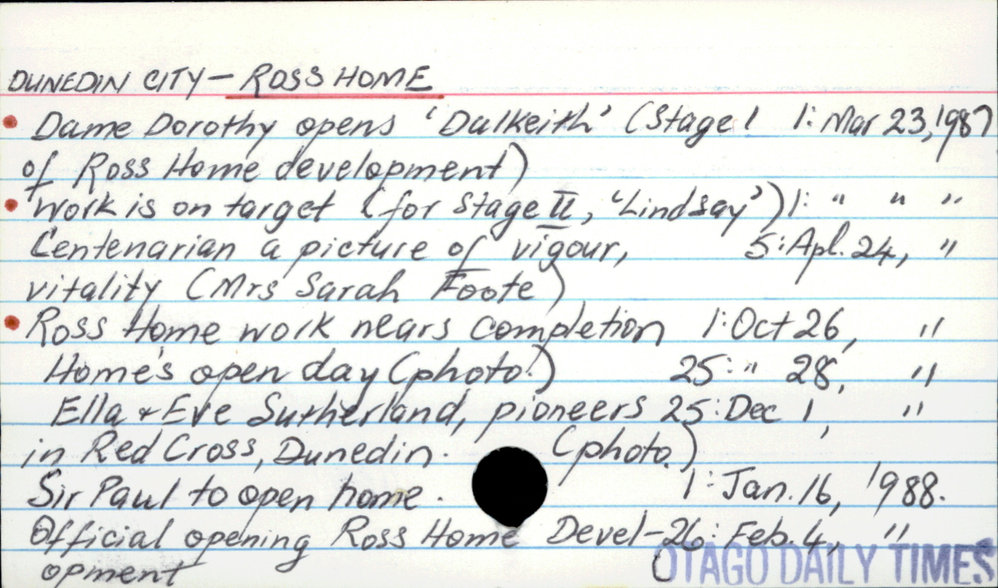 DUNEDIN CITY - ROSS HOME
• Dame Dorothy opens 'Dalkeith' (Stage 1 1: Mar 23, 1987
of Ross Home development)
• Work is on target (for Stage II, 'Lindsay') 1: " " "
Centenarian a picture of vigour, 5: Apl. 24, "
vitality (Mrs Sarah Foote)
• Ross Home work nears completion 1: Oct 26, "
Home's open day (photo.) 25: " 28, "
Ella & Eve Sutherland, pioneers 25: Dec 1, "
in Red Cross, Dunedin. (photo.)
Sir Paul to open home. 1: Jan. 16, 1988.
Official opening Ross Home Devel- 26: Feb. 4, "
opment
OTAGO DAILY TIMES